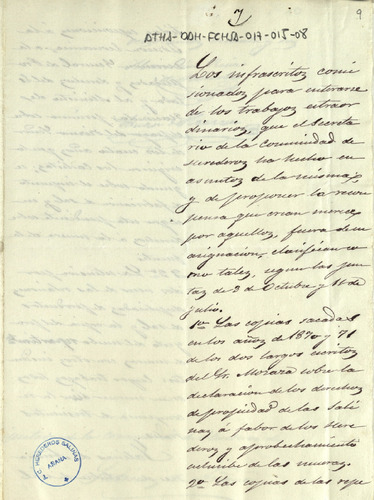 7
9
ATHA-DAH-FCHSA-017-015-08
Los infrascritos comi
sionados para enterarse
de los trabajos extraor
dinarios, que el Secreta
rio de la comunidad de
herederos ha hecho en
asuntos de la misma,
y de proponer la recom
pensa que crean merece
por aquellos, fuera de su
asignacion, clasifican co
mo tales, segun las jun
tas de 2 de Octubre y 11 de
Julio.
1º Las copias sacadas
en los años de 1870 y 71
de los dos largos escritos
del Sr. Moraza sobre la
declaracion de los derechos
de propiedad de las Sali
nas á fabor de los here
deros y aprobechamiento
de las mueras.
2º Las copias de las repe
T. C. HEREDEROS SALINAS
AÑANA